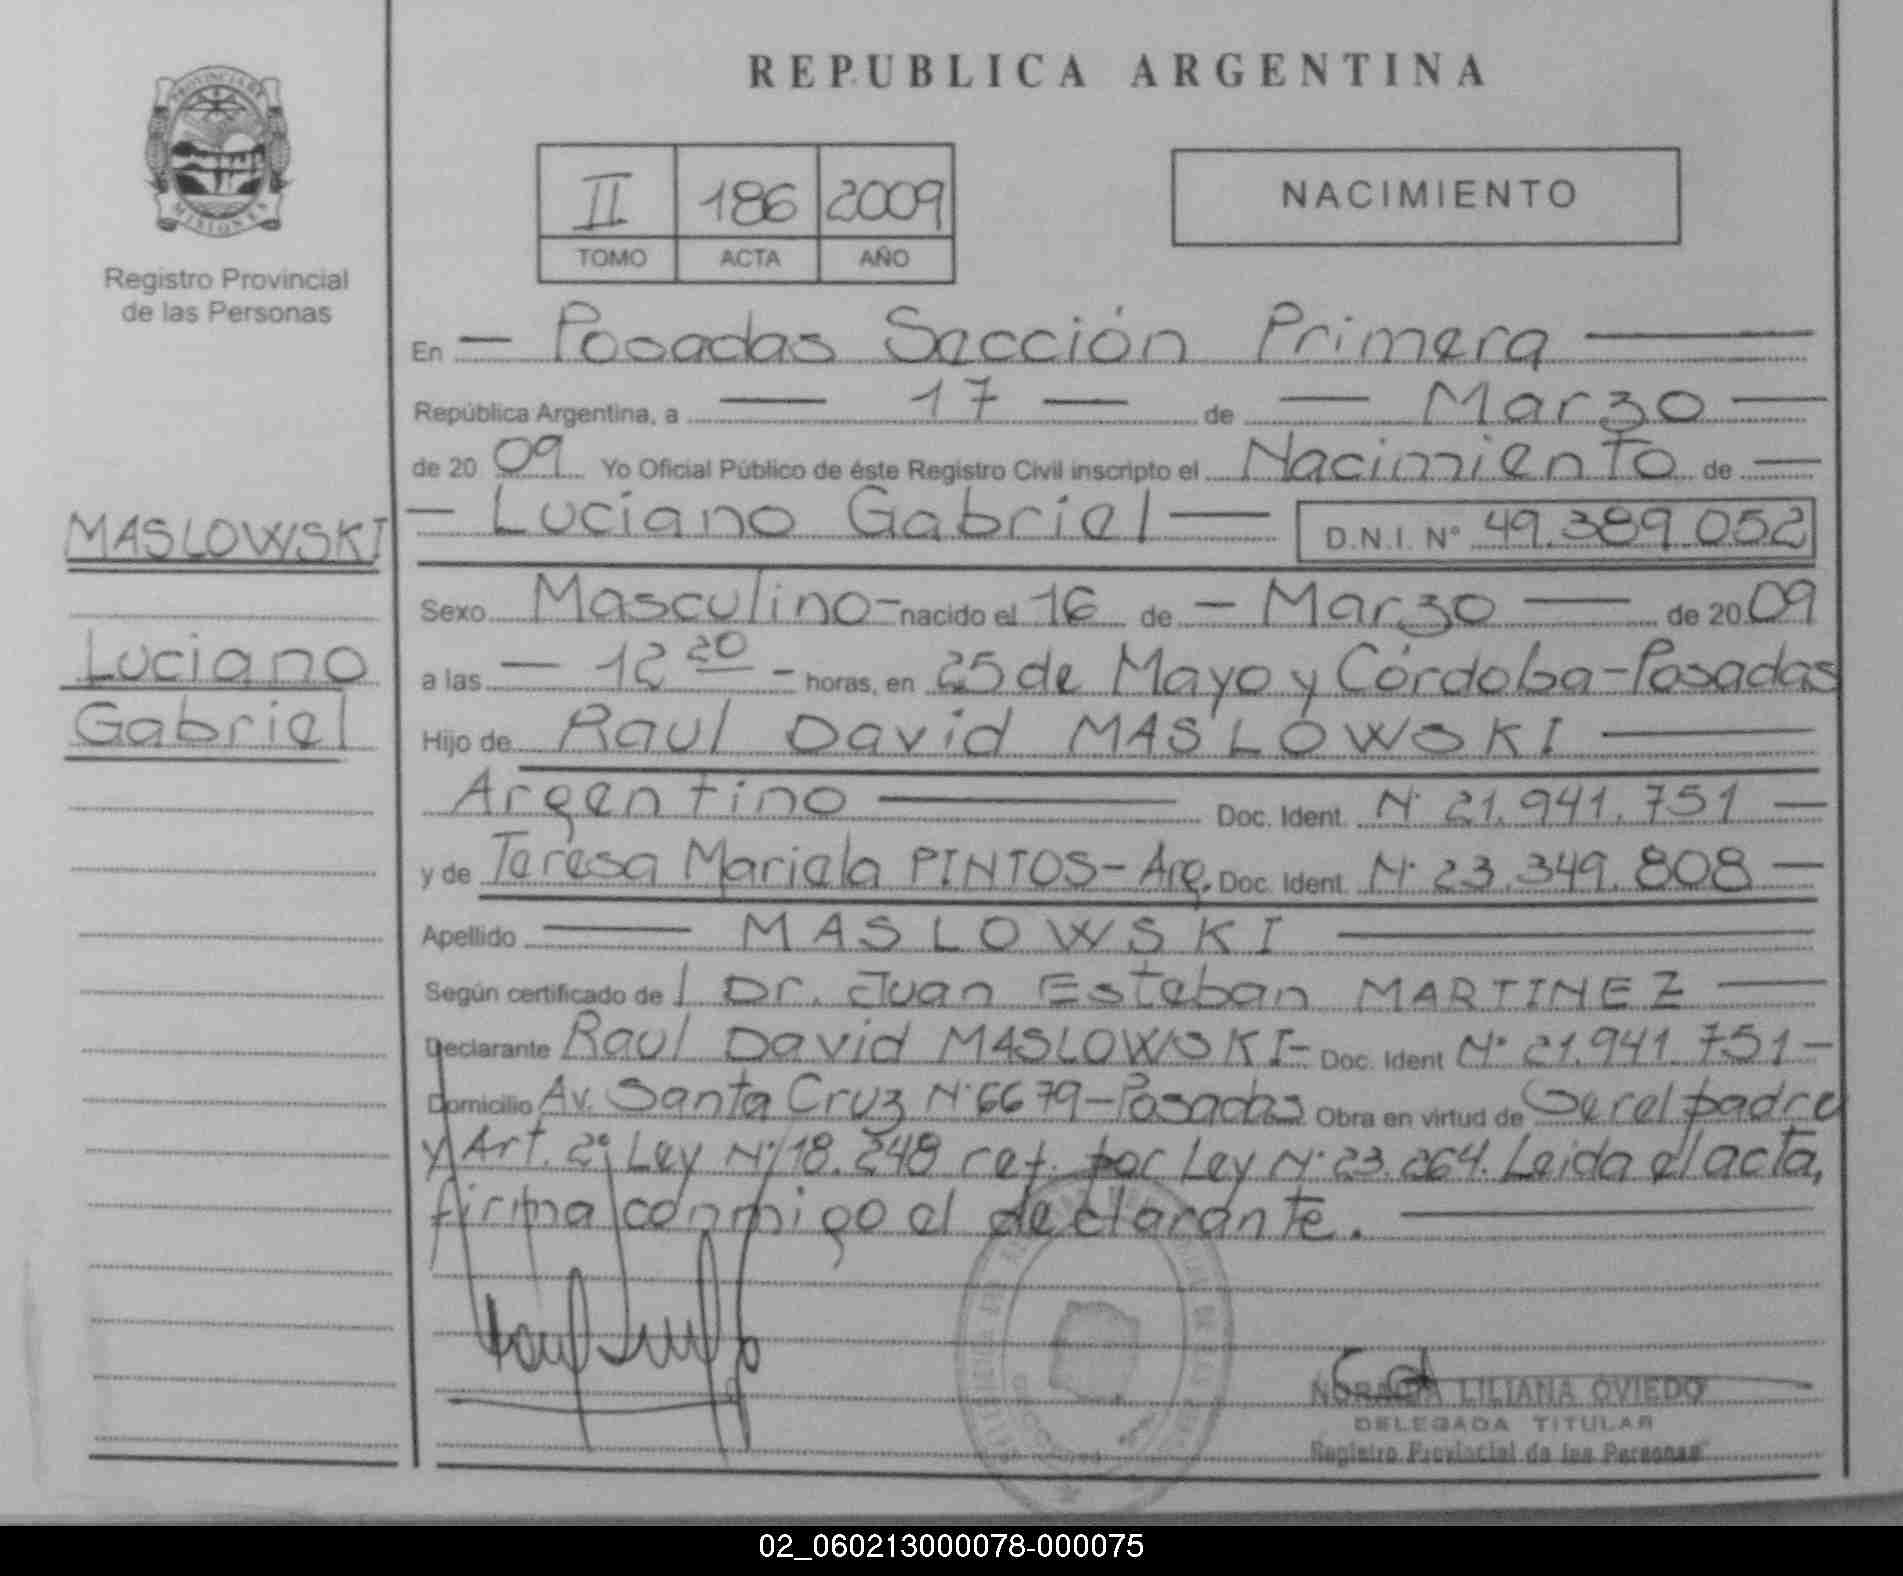 REPUBLICA ARGENTINA
PROVINCIA DE
MISIONES
Registro Provincial
de las Personas
II 186 2009
TOMO ACTA AÑO
NACIMIENTO
En — Posadas Sección Primera —
República Argentina, a — 17 — de — Marzo —
de 20 09 Yo Oficial Público de éste Registro Civil inscripto el Nacimiento de —
— Luciano Gabriel — D.N.I. N° 49.389.052
MASLOWSKI
Luciano
Gabriel
Sexo Masculino - nacido el 16 de — Marzo — de 20 09
a las — 12 20 - horas, en 25 de Mayo y Córdoba - Posadas
Hijo de Raul David MASLOWSKI —
Argentino — Doc. Ident. N° 21.941.751 —
y de Teresa Mariela PINTOS - Arg. Doc. Ident. N° 23.349.808 —
Apellido — MASLOWSKI —
Según certificado de / Dr. Juan Esteban MARTINEZ —
Declarante Raul David MASLOWSKI - Doc. Ident N° 21.941.751 —
Domicilio Av. Santa Cruz N° 6679 - Posadas Obra en virtud de Ser el padre
y Art. 2° Ley N° 18.248 ref. por Ley N° 23.264. Leida el acta,
firma conmigo el declarante. —
LILIANA OVIEDO
DELEGADA TITULAR
Registro Provincial de las Personas
02_060213000078-000075